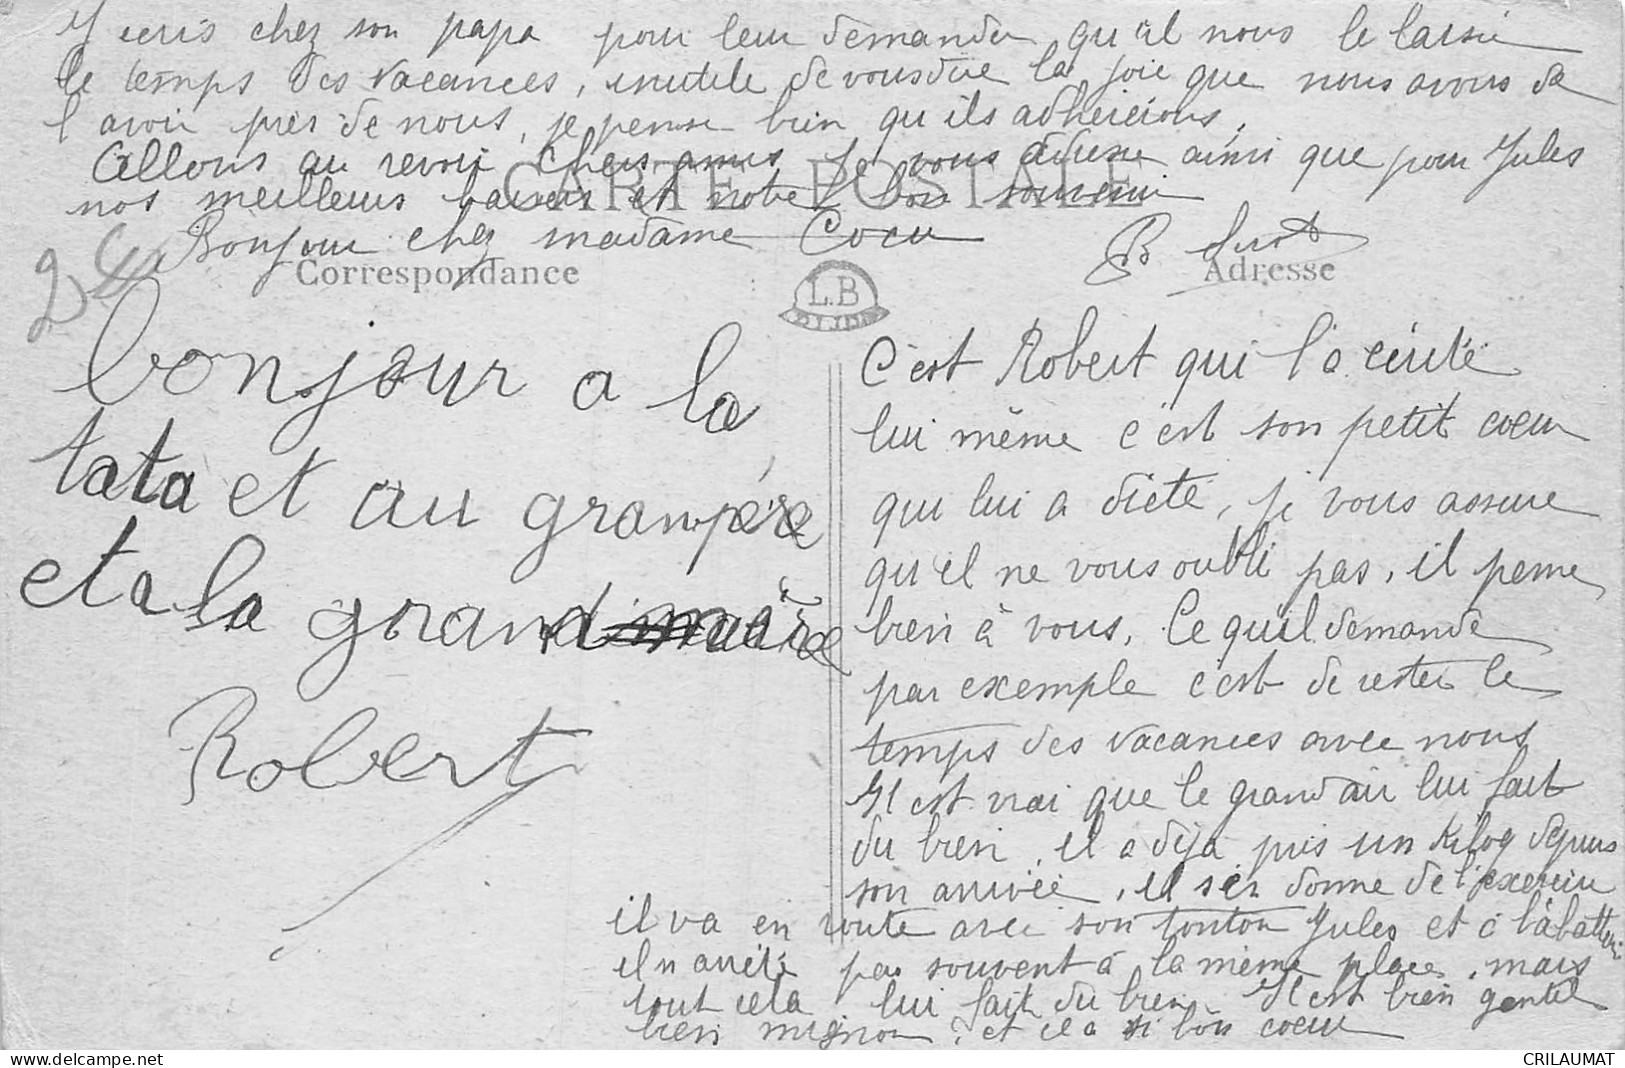 bonjour a la
tata et au granpère
et a la grandmère
Robert
C'est Robert qui l'a écrite
lui même c'est son petit coeur
qui lui a dicté, je vous assure
qu'il ne vous oubli pas, il pense
bien à vous. Ce qu'il demande
par exemple c'est de rester le
temps des vacances avec nous
Il est vrai que le grand air lui fait
du bien, il a déja pris un Kilog depuis
son arrivée, il s'en donne de l'exercice
il va en route avec son tonton Jules et à l'abatteri
il n'arrête pas souvent à la même place, mais
tout cela lui fait du bien. Il est bien gentil
bien mignon, et il a si bon coeur
J'écris chez son papa pour leur demander qu'il nous le laisse
le temps des vacances, inutile de vous dire la joie que nous avons de
l'avoir près de nous, je pense bien qu'ils adhérerons,
Allons au revoir chers amis je vous adresse ainsi que pour Jules
nos meilleurs baisers et notre bon souvenir
Bonjour chez madame Cocu
B
CARTE POSTALE
Correspondance
Adresse
L.B
DIJON
CRILAUMAT